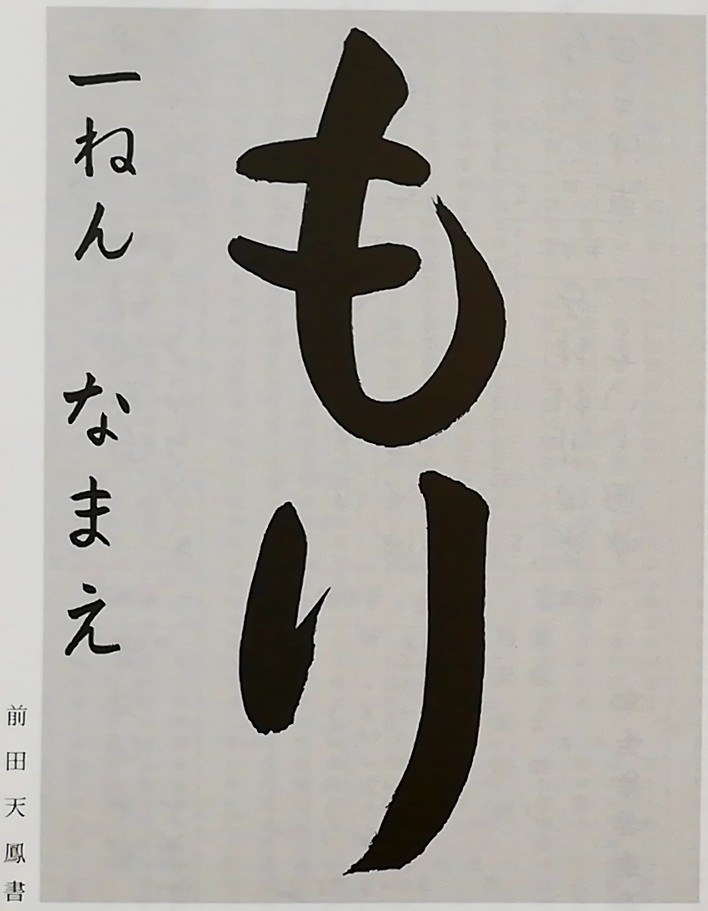 もり
一ねん なまえ
前田天鳳書